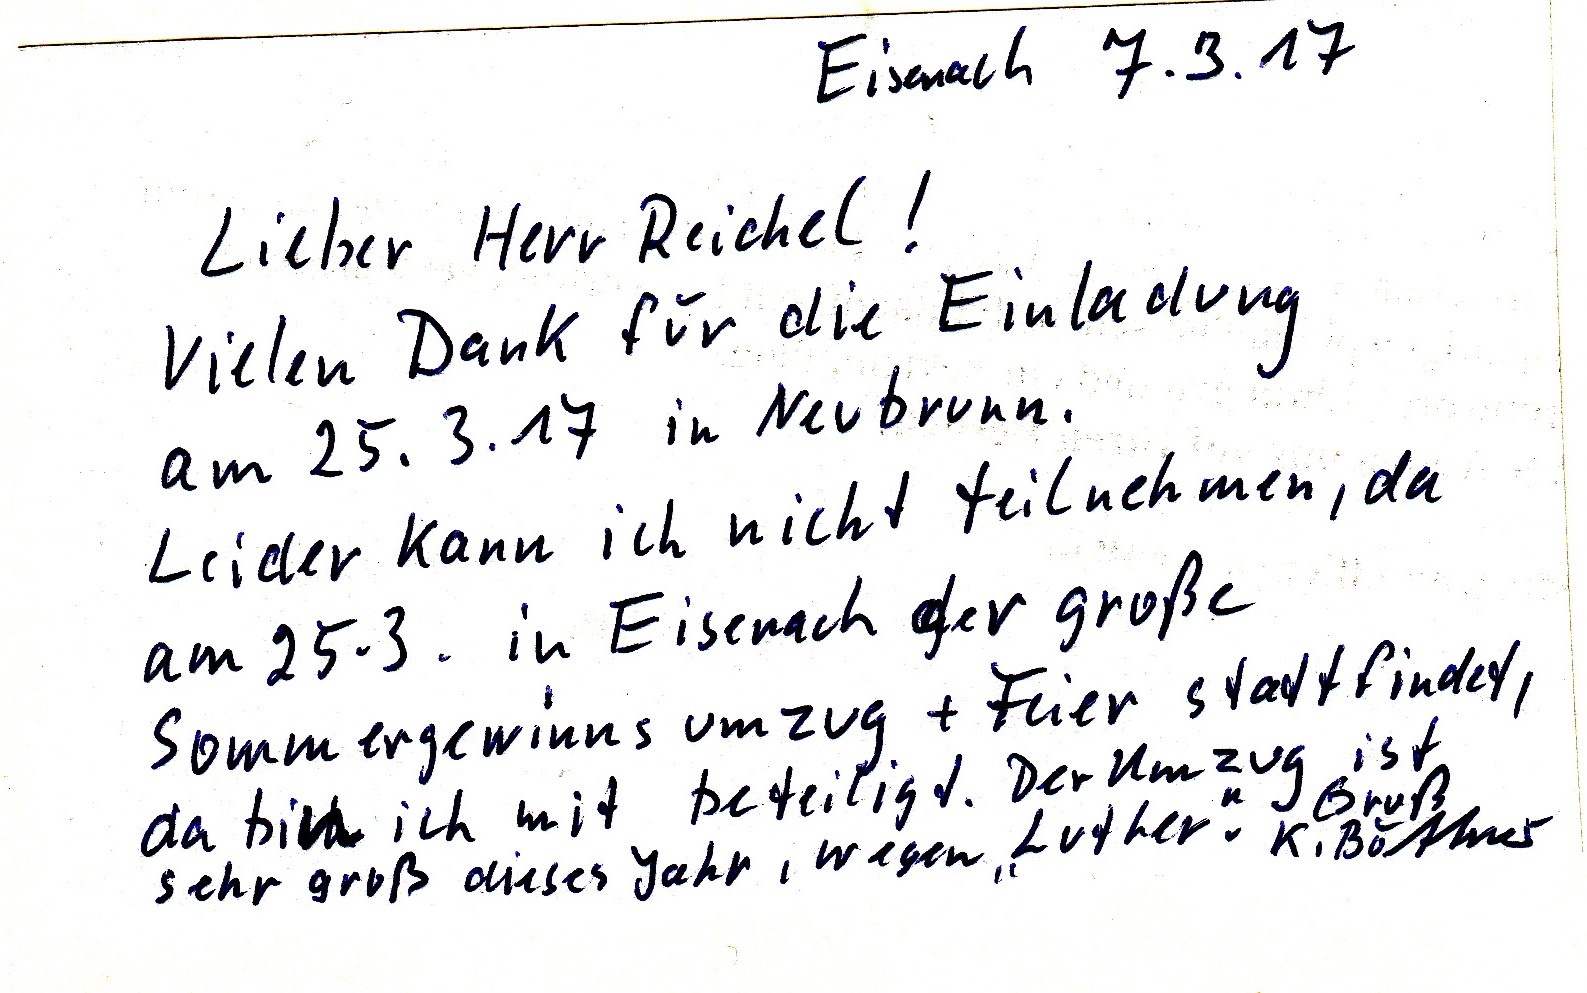 Eisenach 7.3.17
Lieber Herr Reichel!
Vielen Dank für die Einladung
am 25.3.17 in Neubrunn.
Leider kann ich nicht teilnehmen, da
am 25.3. in Eisenach der große
Sommergewinnsumzug + Feier stattfindet,
da bin ich mit beteiligt. Der Umzug ist
sehr groß dieses Jahr, wegen „Luther“. Gruß
K.